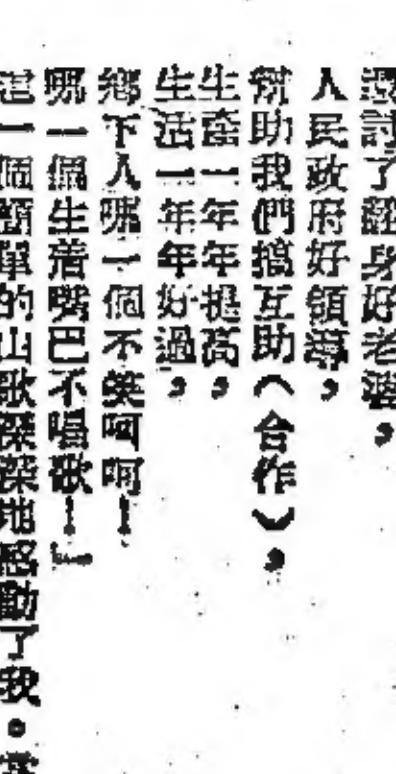 還討了翻身好老婆，
人民政府好領導，
幫助我們搞互助（合作），
生產一年年提高，
生活一年年好過，
鄉下人哪一個不笑呵呵！
哪一個生着嘴巴不唱歌！」
這一個簡單的山歌深深地感動了我。當